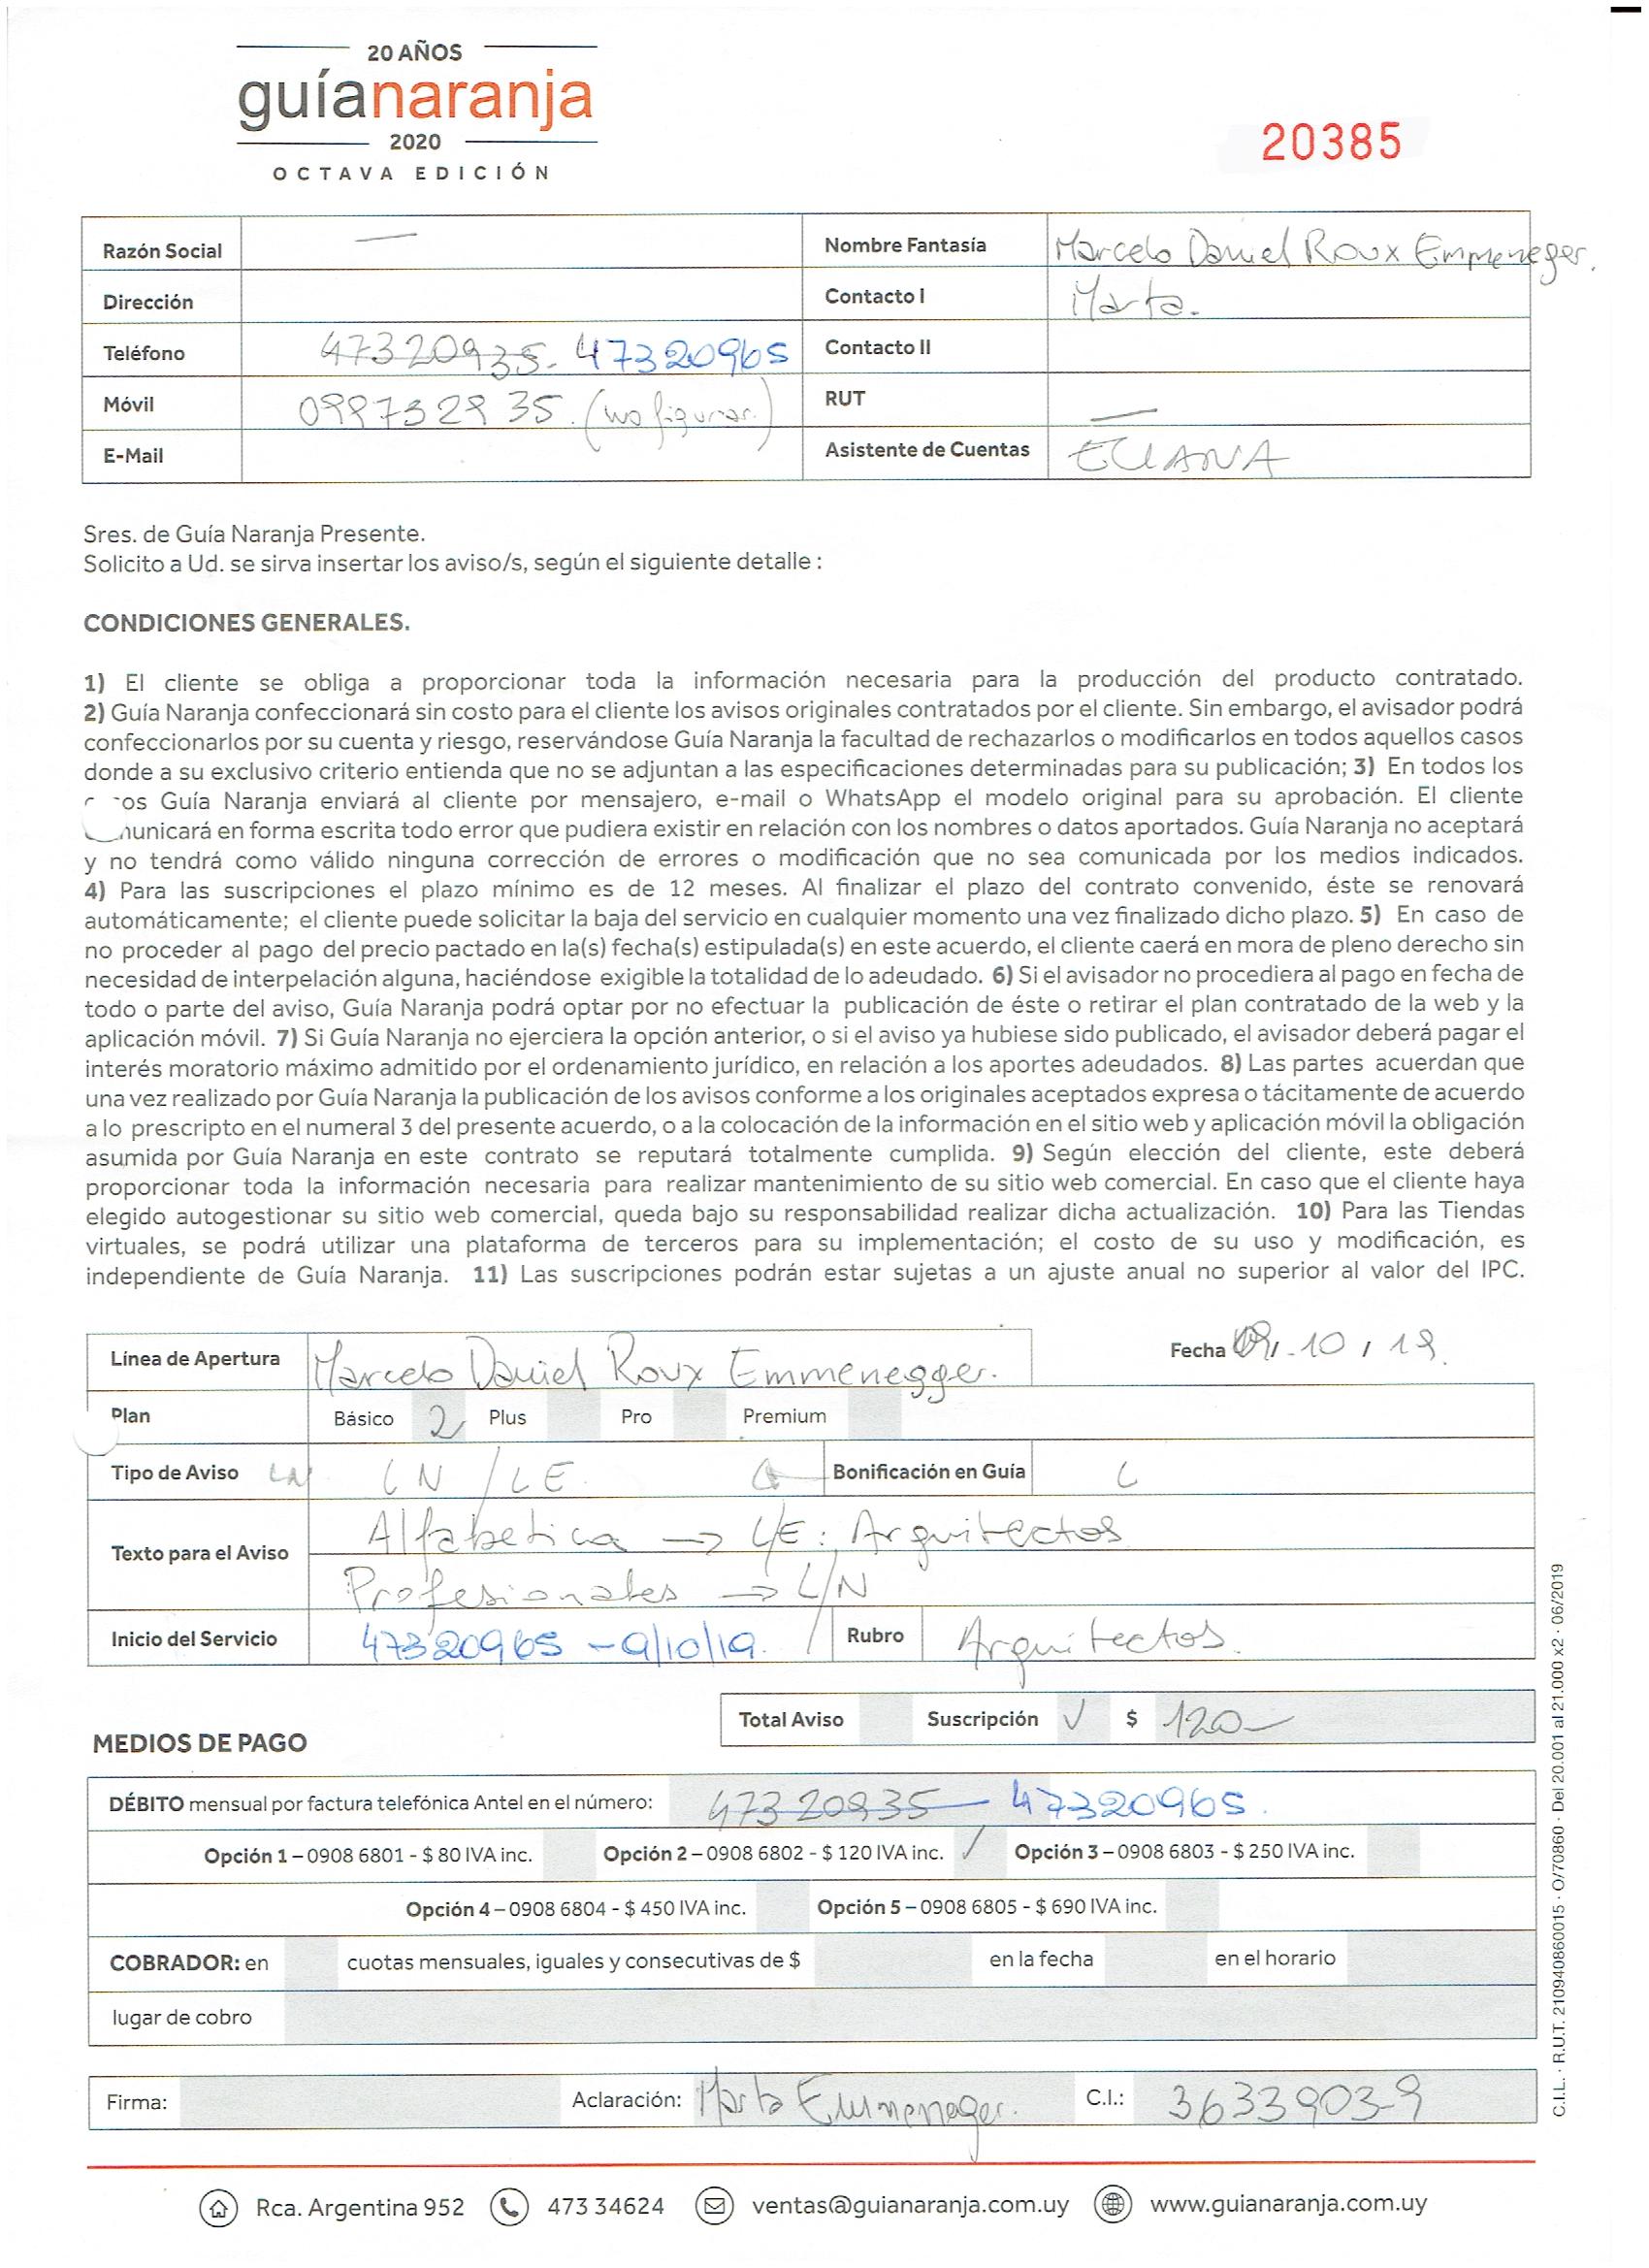 20 AÑOS
guíanaranja
2020
OCTAVA EDICIÓN
20385
Razón Social — Nombre Fantasía Marcelo Daniel Roux Emmeneger.
Dirección Contacto I Marta.
Teléfono 47320935- 47320965 Contacto II
Móvil 099732935. (no figurar) RUT —
E-Mail Asistente de Cuentas ELIANA
Sres. de Guía Naranja Presente.
Solicito a Ud. se sirva insertar los aviso/s, según el siguiente detalle :
CONDICIONES GENERALES.
1) El cliente se obliga a proporcionar toda la información necesaria para la producción del producto contratado.
2) Guía Naranja confeccionará sin costo para el cliente los avisos originales contratados por el cliente. Sin embargo, el avisador podrá
confeccionarlos por su cuenta y riesgo, reservándose Guía Naranja la facultad de rechazarlos o modificarlos en todos aquellos casos
donde a su exclusivo criterio entienda que no se adjuntan a las especificaciones determinadas para su publicación; 3) En todos los
os Guía Naranja enviará al cliente por mensajero, e-mail o WhatsApp el modelo original para su aprobación. El cliente
unicará en forma escrita todo error que pudiera existir en relación con los nombres o datos aportados. Guía Naranja no aceptará
y no tendrá como válido ninguna corrección de errores o modificación que no sea comunicada por los medios indicados.
4) Para las suscripciones el plazo mínimo es de 12 meses. Al finalizar el plazo del contrato convenido, éste se renovará
automáticamente; el cliente puede solicitar la baja del servicio en cualquier momento una vez finalizado dicho plazo. 5) En caso de
no proceder al pago del precio pactado en la(s) fecha(s) estipulada(s) en este acuerdo, el cliente caerá en mora de pleno derecho sin
necesidad de interpelación alguna, haciéndose exigible la totalidad de lo adeudado. 6) Si el avisador no procediera al pago en fecha de
todo o parte del aviso, Guía Naranja podrá optar por no efectuar la publicación de éste o retirar el plan contratado de la web y la
aplicación móvil. 7) Si Guía Naranja no ejerciera la opción anterior, o si el aviso ya hubiese sido publicado, el avisador deberá pagar el
interés moratorio máximo admitido por el ordenamiento jurídico, en relación a los aportes adeudados. 8) Las partes acuerdan que
una vez realizado por Guía Naranja la publicación de los avisos conforme a los originales aceptados expresa o tácitamente de acuerdo
a lo prescripto en el numeral 3 del presente acuerdo, o a la colocación de la información en el sitio web y aplicación móvil la obligación
asumida por Guía Naranja en este contrato se reputará totalmente cumplida. 9) Según elección del cliente, este deberá
proporcionar toda la información necesaria para realizar mantenimiento de su sitio web comercial. En caso que el cliente haya
elegido autogestionar su sitio web comercial, queda bajo su responsabilidad realizar dicha actualización. 10) Para las Tiendas
virtuales, se podrá utilizar una plataforma de terceros para su implementación; el costo de su uso y modificación, es
independiente de Guía Naranja. 11) Las suscripciones podrán estar sujetas a un ajuste anual no superior al valor del IPC.
Línea de Apertura Marcelo Daniel Roux Emmenegger. Fecha 09/ 10 / 19.
Plan Básico 2 Plus Pro Premium
Tipo de Aviso LN LN / LE Bonificación en Guía
Texto para el Aviso Alfabetica → L/E: Arquitectos
Profesionales → L/N
Inicio del Servicio 47320965 - 9/10/19. Rubro Arquitectos.
Total Aviso Suscripción ✓ $ 120-
MEDIOS DE PAGO
DÉBITO mensual por factura telefónica Antel en el número: 47320935 47320965.
Opción 1 – 0908 6801 - $ 80 IVA inc. Opción 2 – 0908 6802 - $ 120 IVA inc. ✓ Opción 3 – 0908 6803 - $ 250 IVA inc.
Opción 4 – 0908 6804 - $ 450 IVA inc. Opción 5 – 0908 6805 - $ 690 IVA inc.
COBRADOR: en cuotas mensuales, iguales y consecutivas de $ en la fecha en el horario
lugar de cobro
Firma: Aclaración: Marta Emmeneger. C.I.: 3633903-9
Rca. Argentina 952 473 34624 ventas@guianaranja.com.uy www.guianaranja.com.uy
C.I.L. · R.U.T. 210940860015 · O/70860 · Del 20.001 al 21.000 x2 · 06/2019